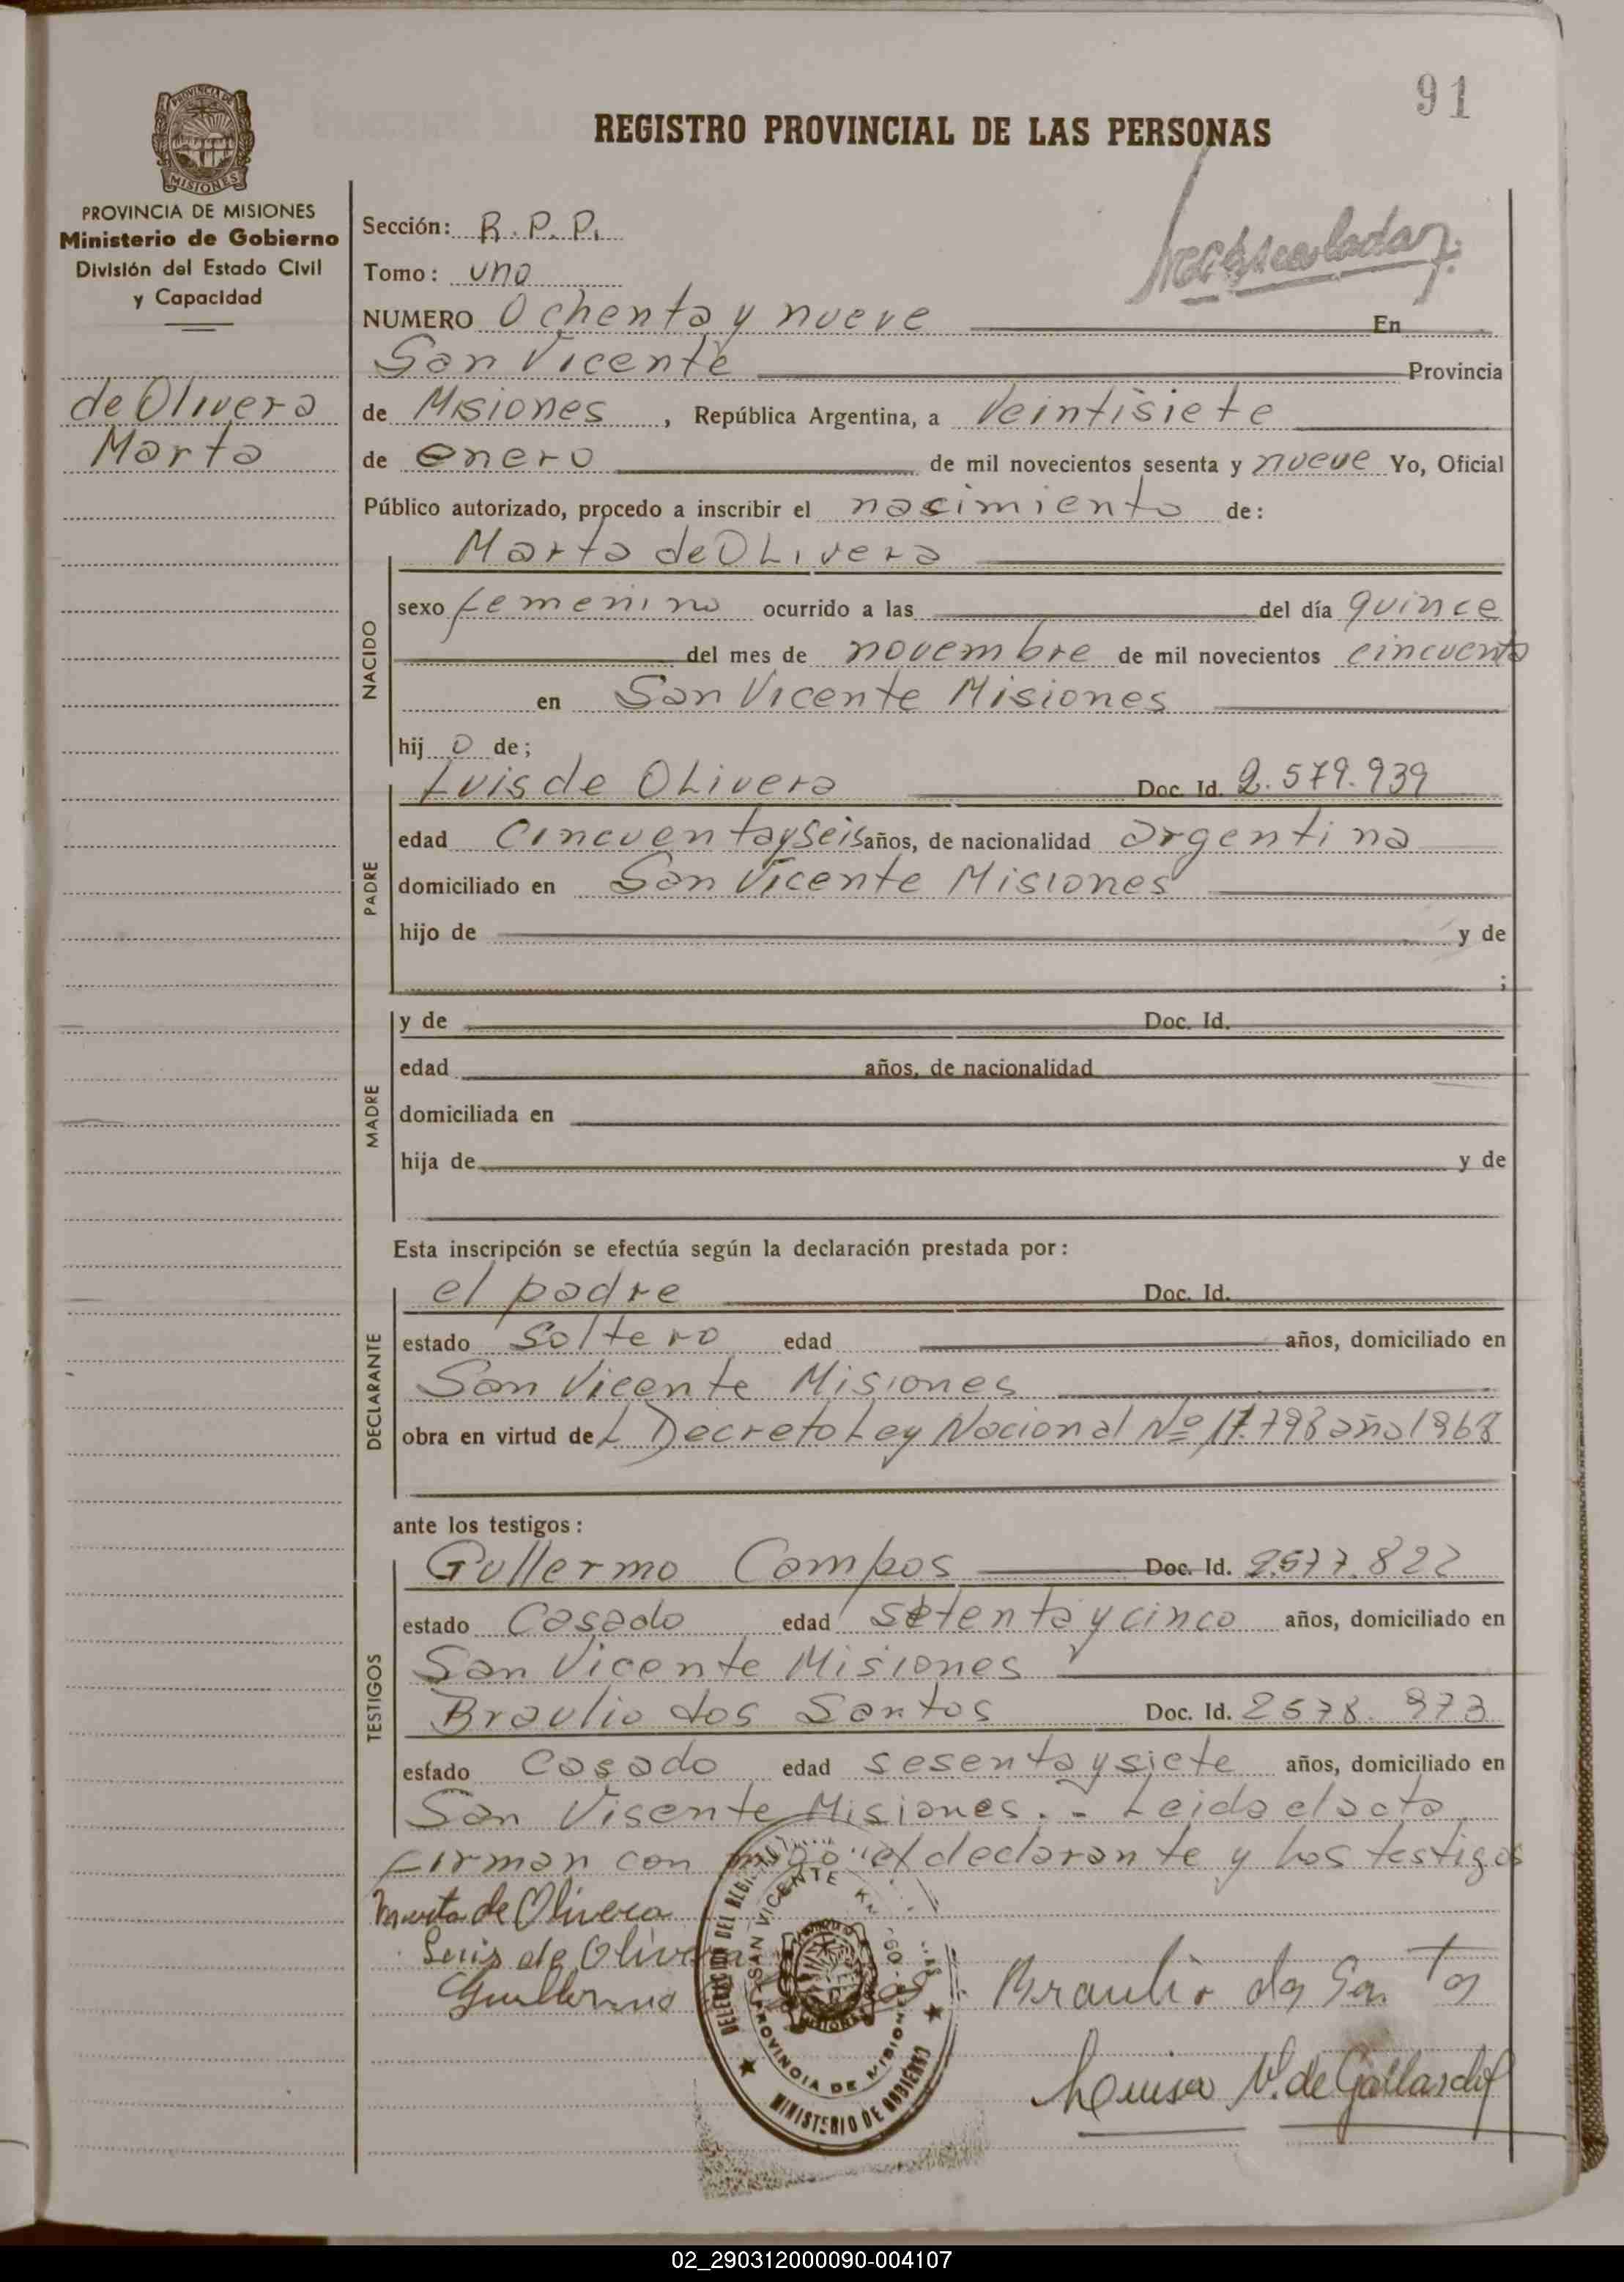 91
REGISTRO PROVINCIAL DE LAS PERSONAS
PROVINCIA DE MISIONES
MISIONES
PROVINCIA DE MISIONES
Ministerio de Gobierno
División del Estado Civil
y Capacidad
de Olivera
Marta
Sección: R.P.P.
Tomo: uno
NUMERO Ochenta y nueve En
San Vicente Provincia
de Misiones, República Argentina, a Veintisiete
de enero de mil novecientos sesenta y nueve Yo, Oficial
Público autorizado, procedo a inscribir el nacimiento de:
Marta de OLivera
NACIDO
sexo femenino ocurrido a las del día quince
del mes de novembre de mil novecientos cincuenta
en San Vicente Misiones
hij o de;
PADRE
Luis de OLivera Doc. Id. 2.579.939
edad Cincuenta y Seis años, de nacionalidad argentina
domiciliado en San Vicente Misiones
hijo de y de
;
MADRE
y de Doc. Id.
edad años, de nacionalidad
domiciliada en
hija de y de
Esta inscripción se efectúa según la declaración prestada por:
DECLARANTE
el padre Doc. Id.
estado Soltero edad años, domiciliado en
San Vicente Misiones
obra en virtud de L Decreto Ley Nacional Nº 17.798 año 1968
ante los testigos:
TESTIGOS
Gullermo Campos Doc. Id. 2.577.822
estado Casado edad setenta y cinco años, domiciliado en
San Vicente Misiones
Braulio dos Santos Doc. Id. 2578.973
estado Casado edad sesenta y siete años, domiciliado en
San Visente Misiones. - Leida el acta
firman con migo el declarante y Los testigos
Marta de Olivera
Luis de Olivera
Guillermo
Braulio do Sa Tos
Louisa V. de Gallardo
DELEGACION DEL REGISTRO
SAN VICENTE KM
PROVINCIA DE MISIONES
MINISTERIO DE GOBIERNO
02_290312000090-004107